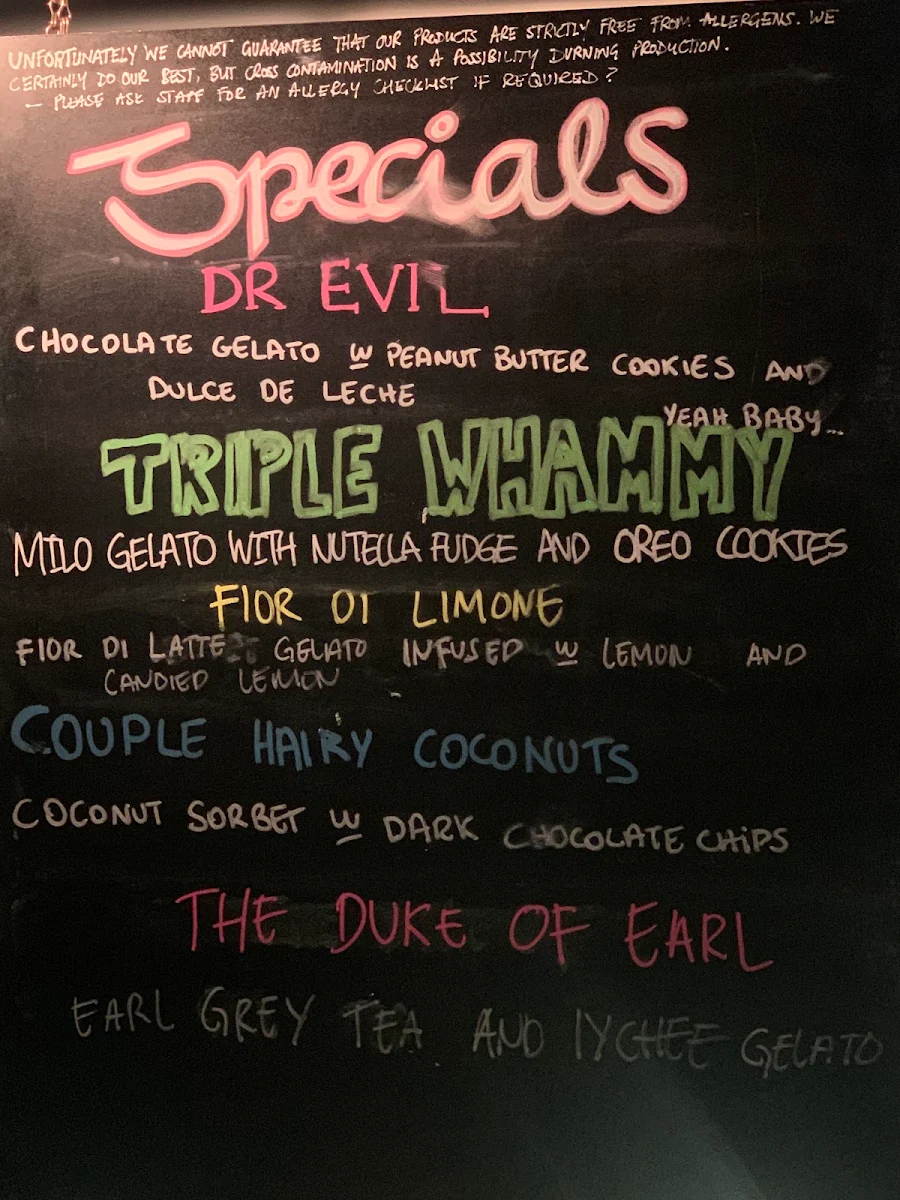 UNFORTUNATELY WE CANNOT GUARANTEE THAT OUR PRODUCTS ARE STRICTLY FREE FROM ALLERGENS. WE
CERTAINLY DO OUR BEST, BUT CROSS CONTAMINATION IS A POSSIBILITY DURNING PRODUCTION.
– PLEASE ASK STAFF FOR AN ALLERGY CHECKLIST IF REQUIRED?
Specials
DR EVIL
CHOCOLATE GELATO w PEANUT BUTTER COOKIES AND
DULCE DE LECHE
YEAH BABY...
TRIPLE WHAMMY
MILO GELATO WITH NUTELLA FUDGE AND OREO COOKIES
FIOR DI LIMONE
FIOR DI LATTE GELATO INFUSED w LEMON AND
CANDIED LEMON
COUPLE HAIRY COCONUTS
COCONUT SORBET w DARK CHOCOLATE CHIPS
THE DUKE OF EARL
EARL GREY TEA AND LYCHEE GELATO